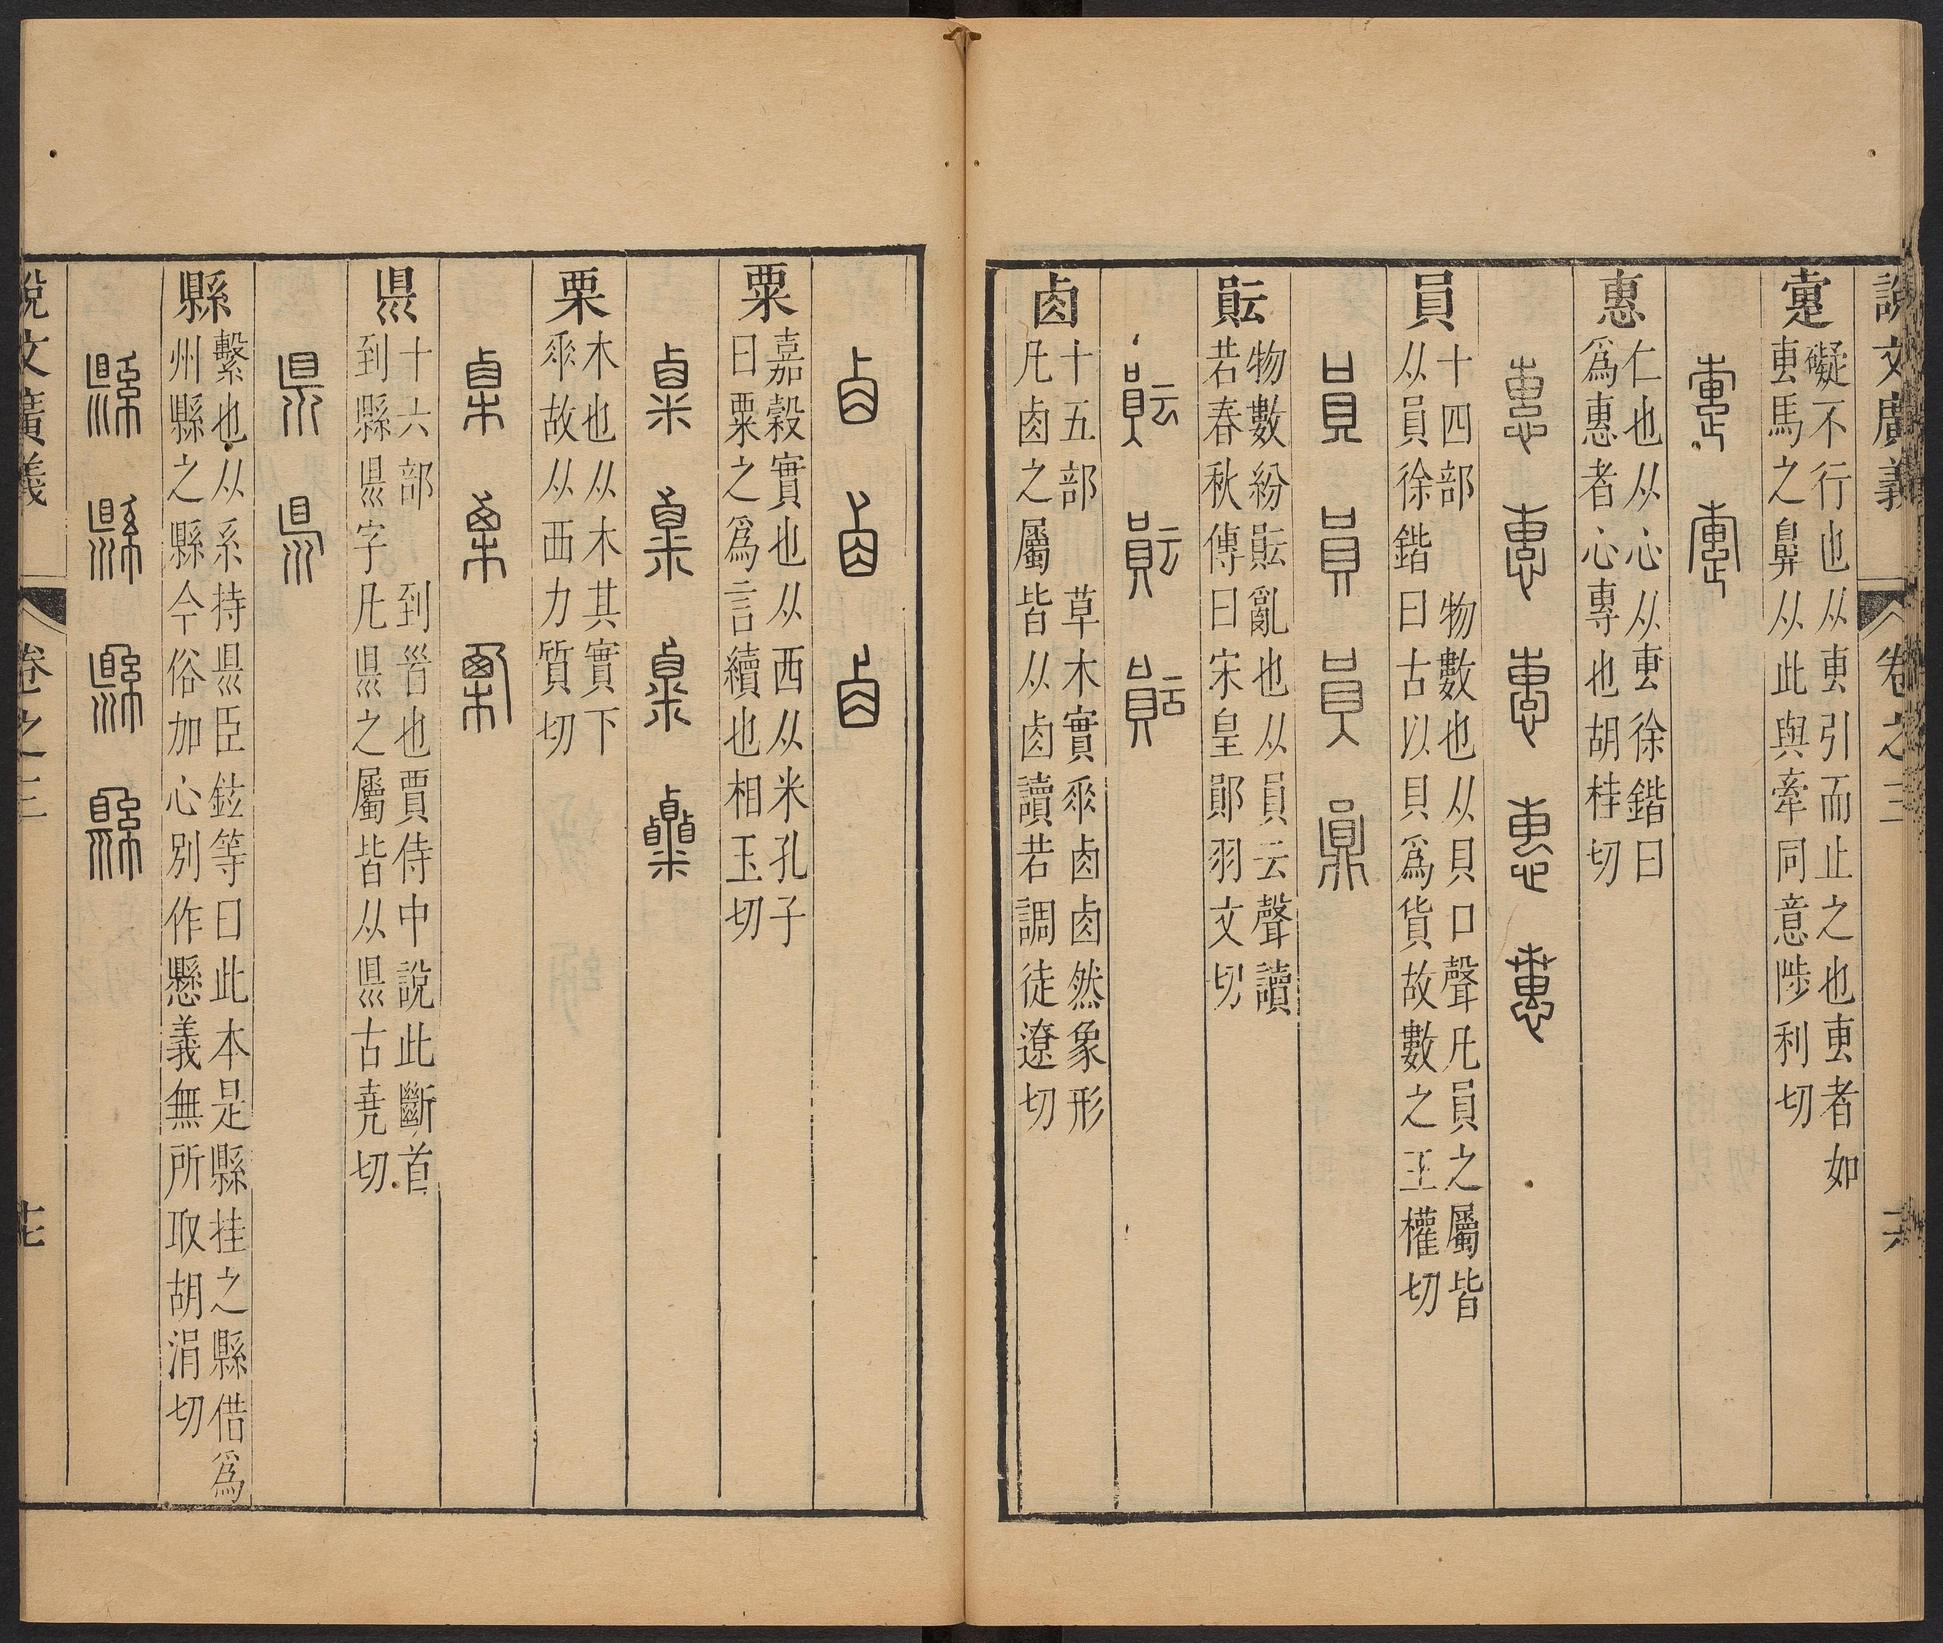 說文廣義 卷之三
疐
礙不行也从叀引而止之也叀者如
叀馬之鼻从此與牽同意陟利切
惠
仁也从心从叀徐鍇曰
爲惠者心專也胡桂切
員
十四部 物數也从貝口聲凡員之屬皆
从員徐鍇曰古以貝爲貨故數之王權切
䫟
物數紛䫟亂也从員云聲讀
若春秋傳曰宋皇鄖羽文切
卥
十五部 草木實𠂹卥卥然象形
凡卥之屬皆从卥讀若調徒遼切
粟
嘉穀實也从西从米孔子
曰粟之爲言續也相玉切
栗
木也从木其實下
𠂹故从西力質切
県
十六部 到𩠐也賈侍中說此斷首
到縣県字凡県之屬皆从県古堯切
縣
繫也从系持県臣鉉等曰此本是縣挂之縣借爲
州縣之縣今俗加心別作懸義無所取胡涓切
說文廣義 卷之三